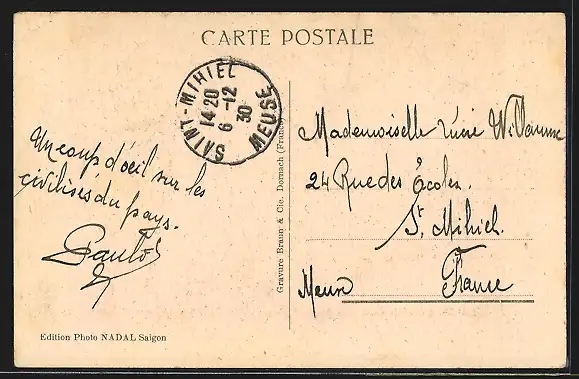 CARTE POSTALE
SAINT-MIHIEL
14 20
6 -12
30
MEUSE
Un coup d'oeil sur les
civilisés du pays.
Mademoiselle
24 Rue des Écoles.
St. Mihiel.
Meuse France
Gravure Braun & Cie. Dornach (France)
Edition Photo NADAL Saigon